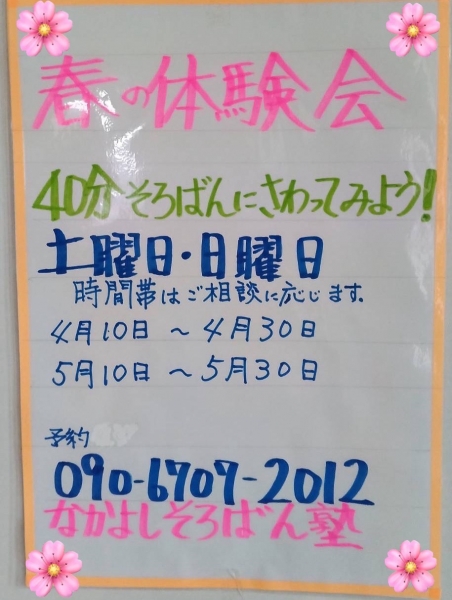 春の体験会
40分そろばんにさわってみよう!
土曜日・日曜日
時間帯はご相談に応じます。
4月10日 ~ 4月30日
5月10日 ~ 5月30日
予約
090-6707-2012
なかよしそろばん塾